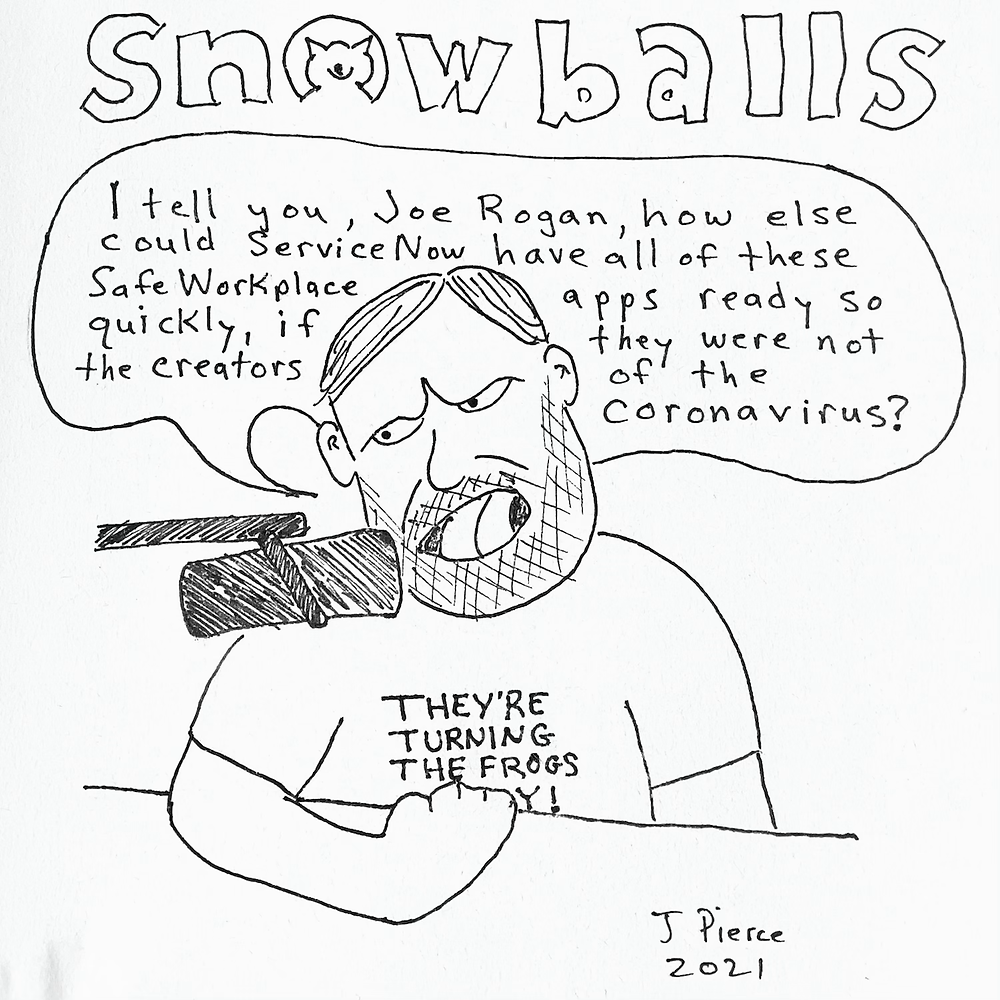 Snowballs
I tell you, Joe Rogan, how else
could ServiceNow have all of these
Safe Workplace apps ready so
quickly, if they were not
the creators of the
coronavirus?
THEY'RE
TURNING
THE FROGS
Y!
J Pierce
2021